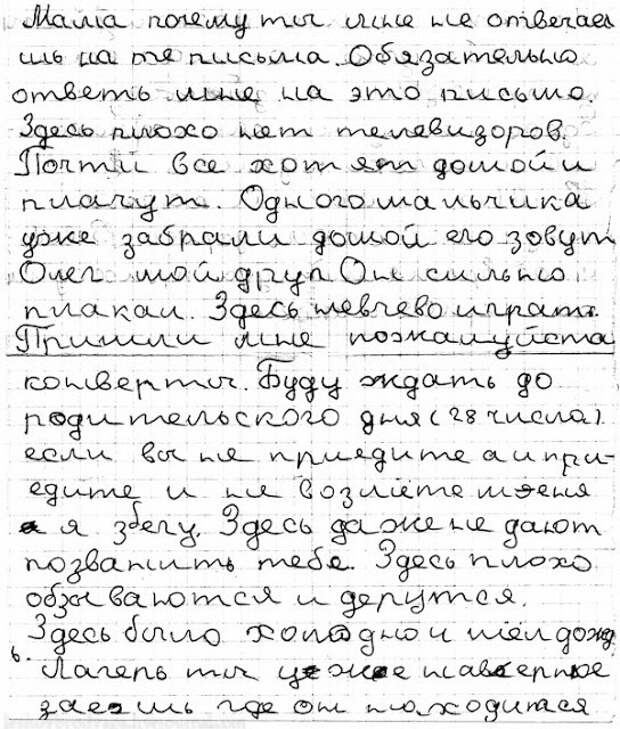 Мама почему ты мне не отвечае
шь на те письма. Обязательно
ответь мне на это письмо.
Здесь плохо нет телевизоров.
Почти все хотят домой и
плачут. Одного мальчика
уже забрали домой его зовут
Олег мой друг. Он сильно
плакал. Здесь невчево играть.
Пришли мне пожалуйста
конверты. Буду ждать до
родительского дня (28 числа).
если вы не приедите а и при-
едите и не возмёте меня
я збегу. Здесь даже не дают
позванить тебе. Здесь плохо
обзываются и дерутся.
Здесь было холодно и шёл дожд
ь. Лагерь ты уже наверное
знаешь где он находится